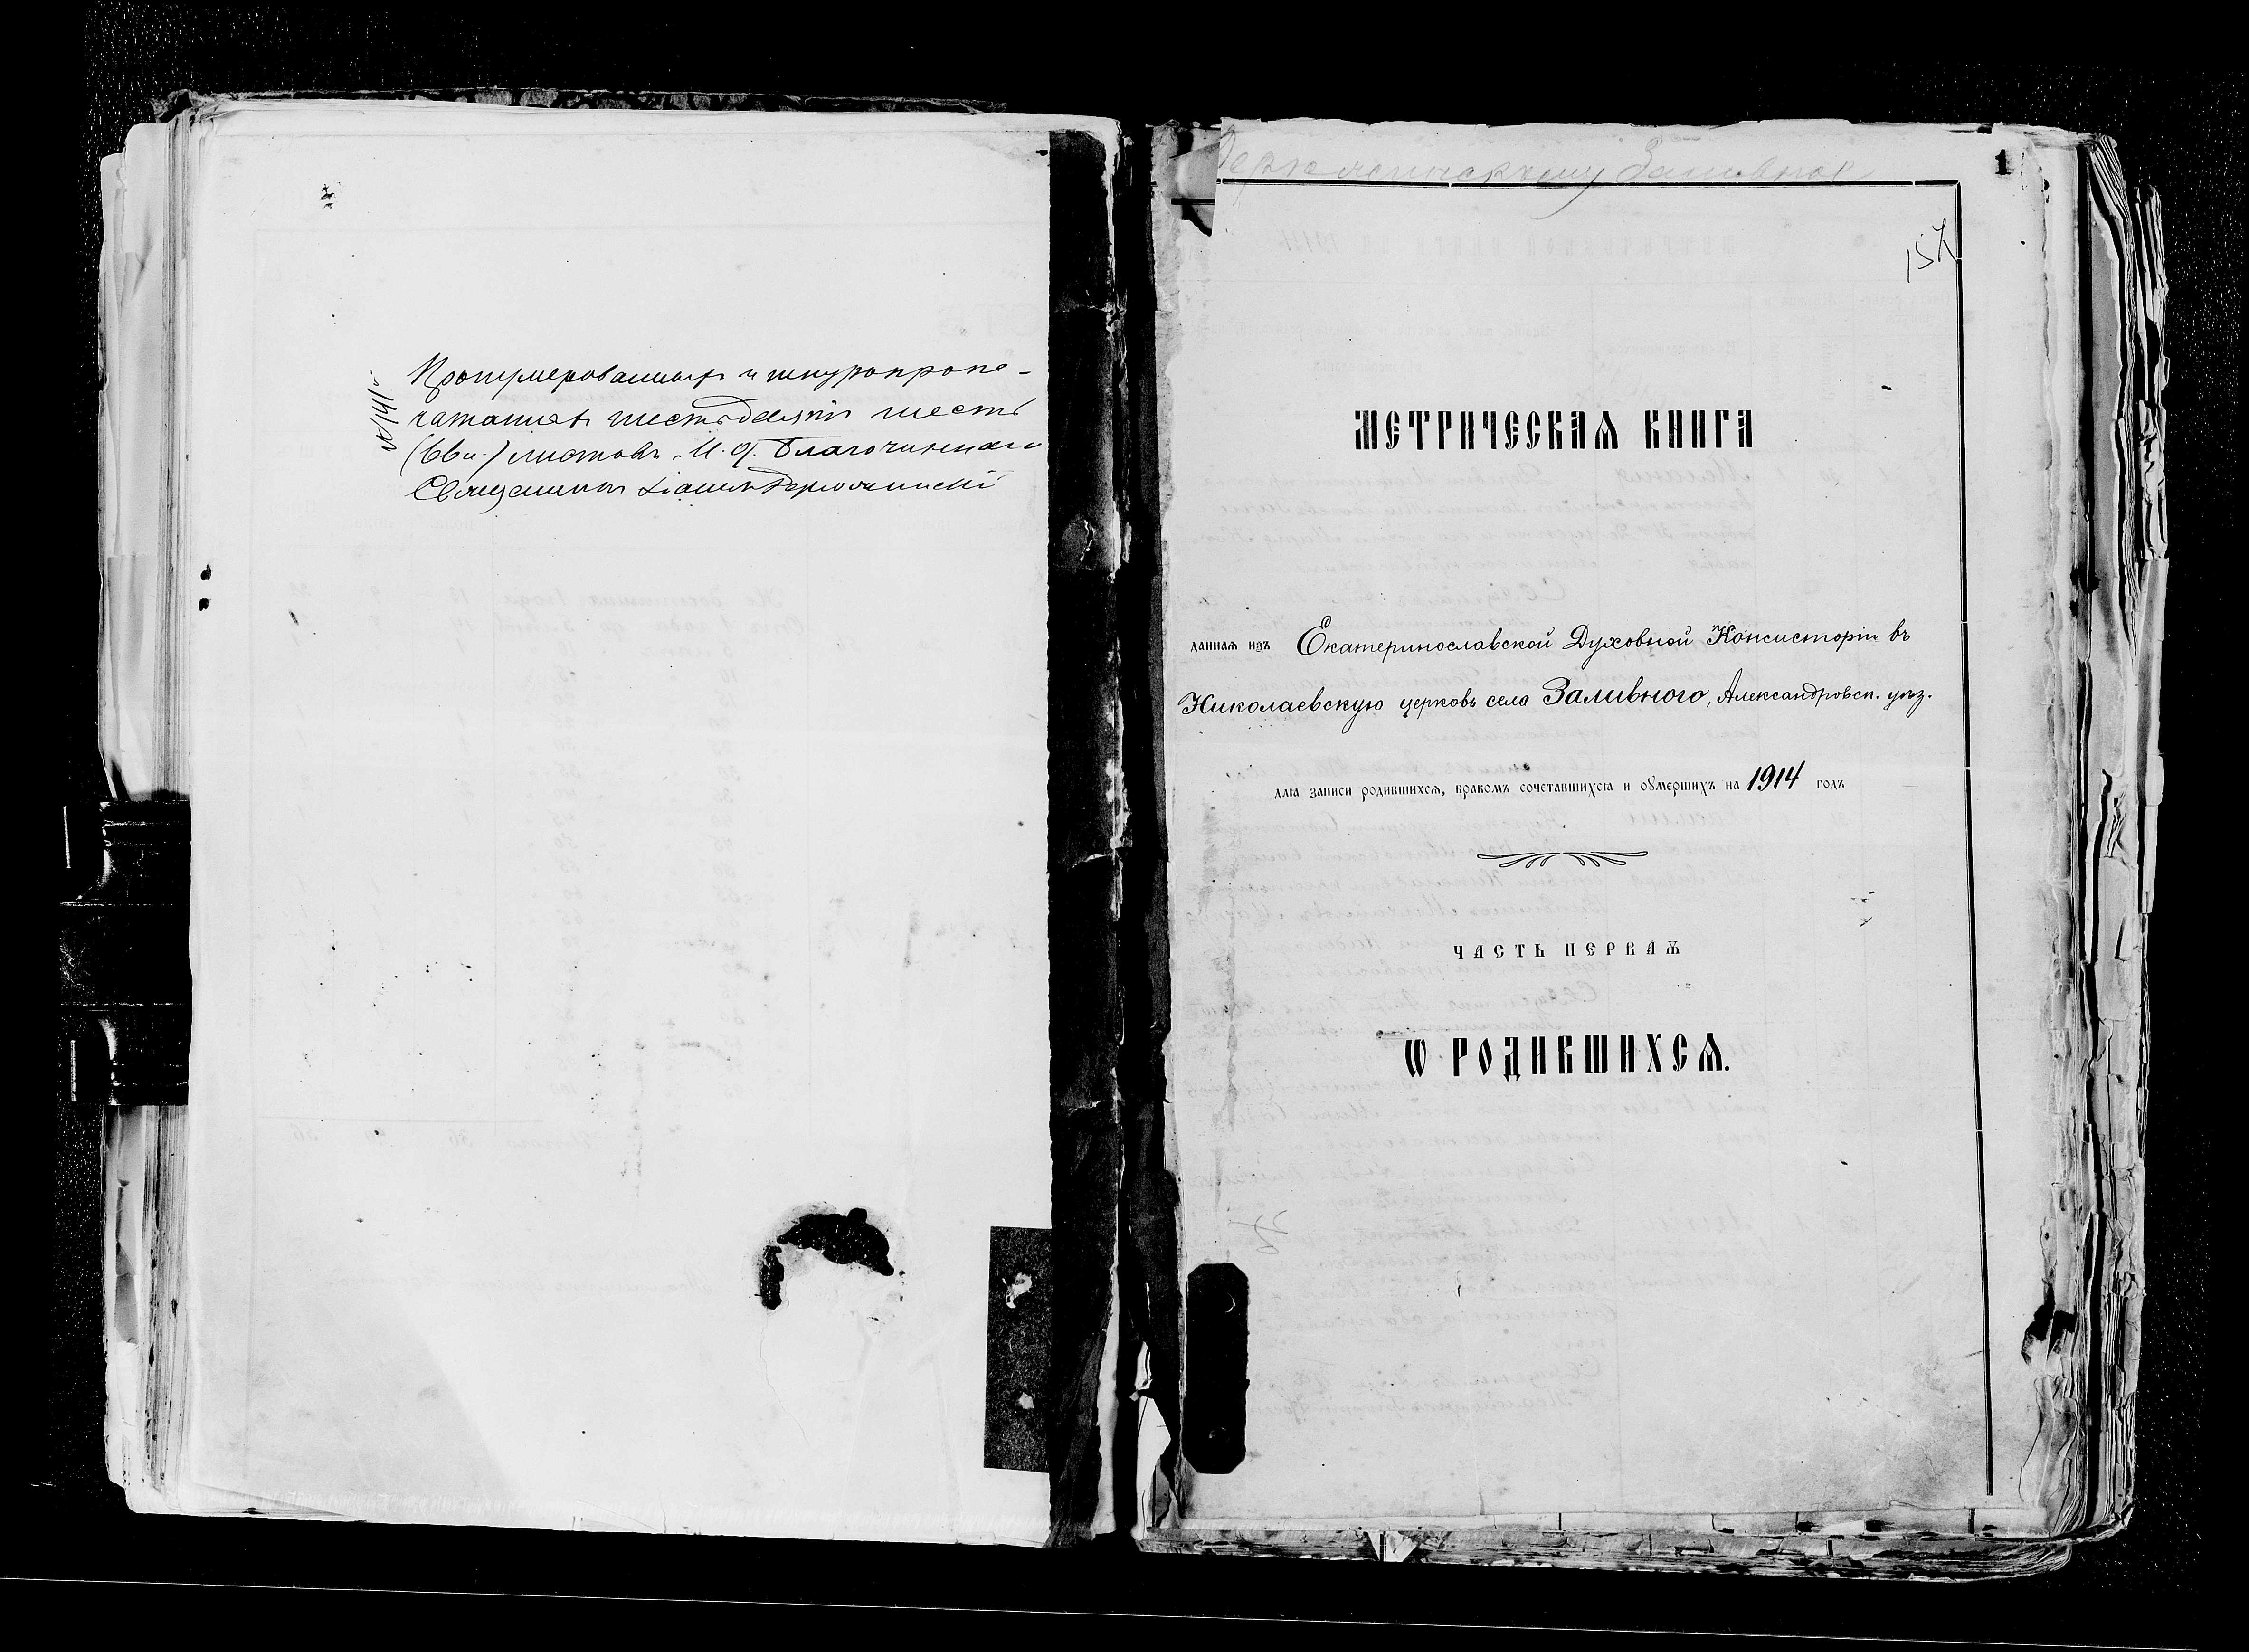 Пронумерованныхъ и шнуропропе-
чатанныхъ шестьдесятъ шесть
(66 л.) листовъ. И. д. Благочиннаго
Священникъ
1
157
МЕТРИЧЕСКАѦ КНИГА
даннаѧ изъ Екатеринославской Духовной Консисторіи въ
Николаевскую церковь села Заливного, Александровск. уѣз.
длѧ записи родившихсѧ, бракомъ сочетавшихсѧ и ѹмершихъ на 1914 годъ
ЧАСТЬ ПЕРВАѦ
Ѡ РОДИВШИХСѦ.